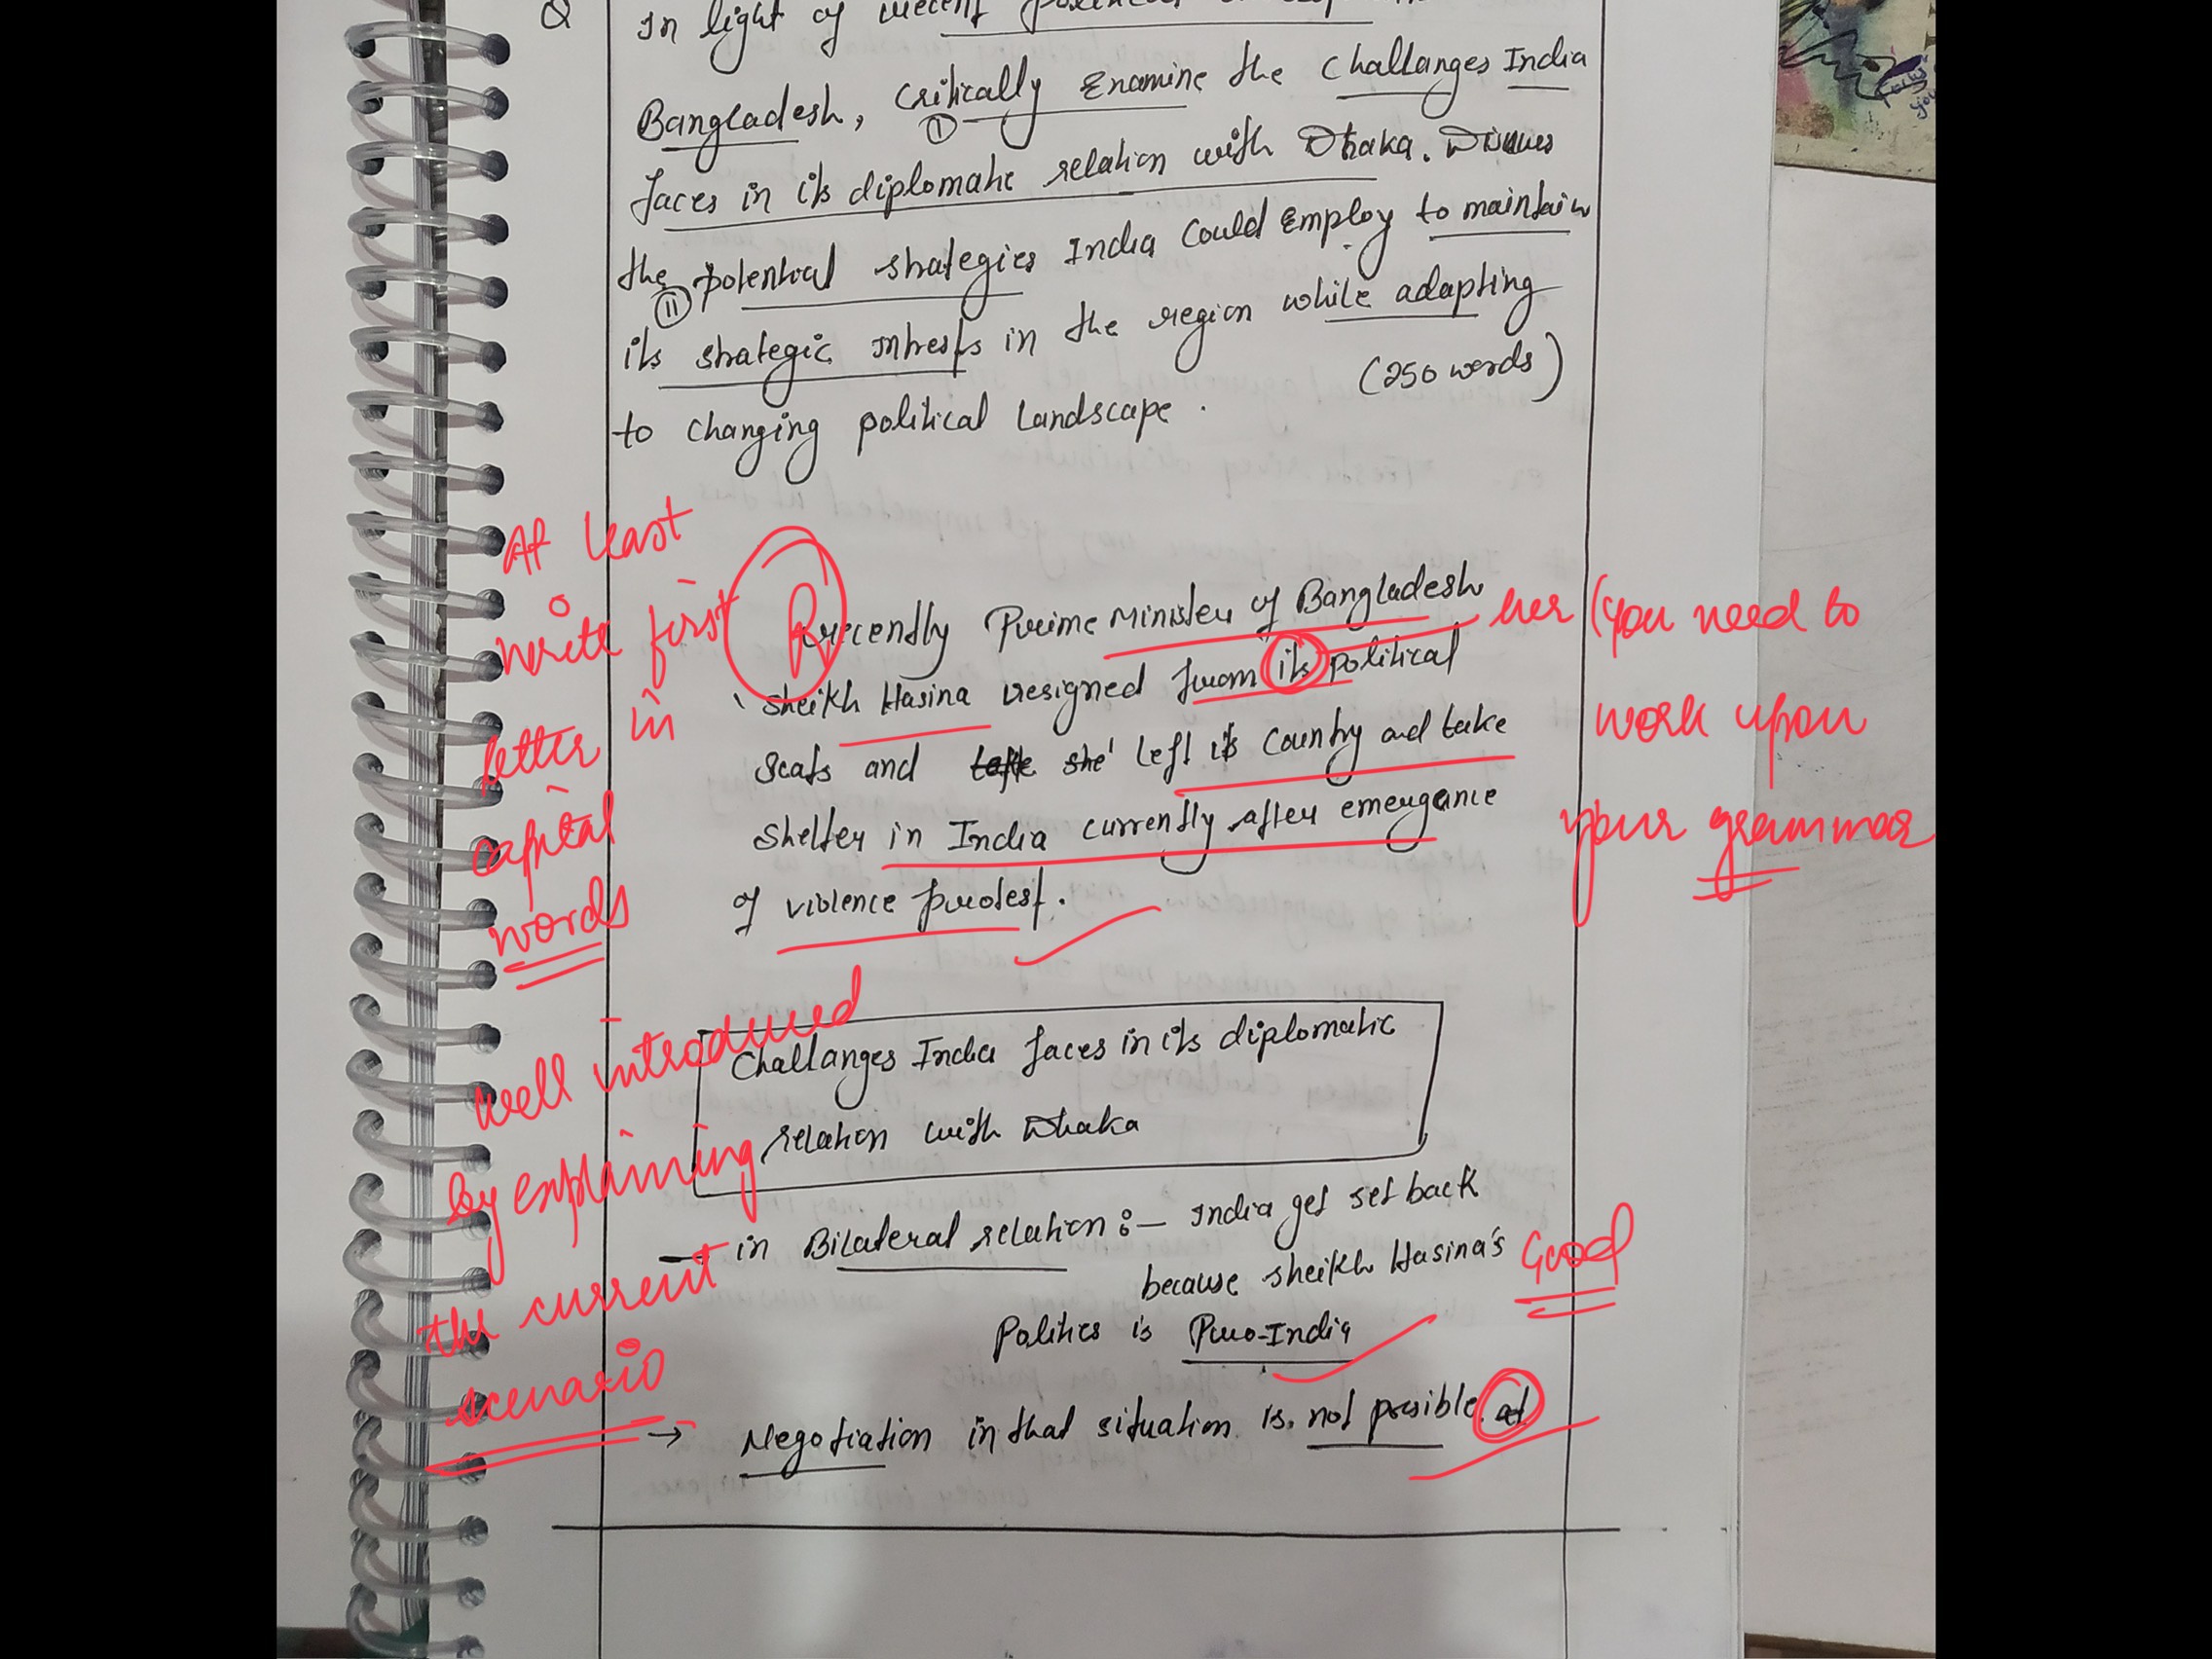 Q In light of recent political
Bangladesh, Critically Examine the Challanges India
I
faces in its diplomatic relation with Dhaka. Disuess
the potential strategies India Could Employ to maintain
II
its strategic intrests in the region while adapting
(250 words)
to changing political Landscape.
At least
write first
letter in
capital
words
R
recently Prime Minister of Bangladesh
her (you need to
work upon
your grammar
Sheikh Hasina resigned from its political
Seats and she left its Country and take
Shelter in India currently after emergance
of violence protest.
well introduced
by explaining
the current
scenario
Challanges India faces in its diplomatic
relation with Dhaka
→ in Bilateral relation :- India get set back
because Sheikh Hasina's
Politics is Pro-India
Good
→ Negotiation in that situation is not possible at